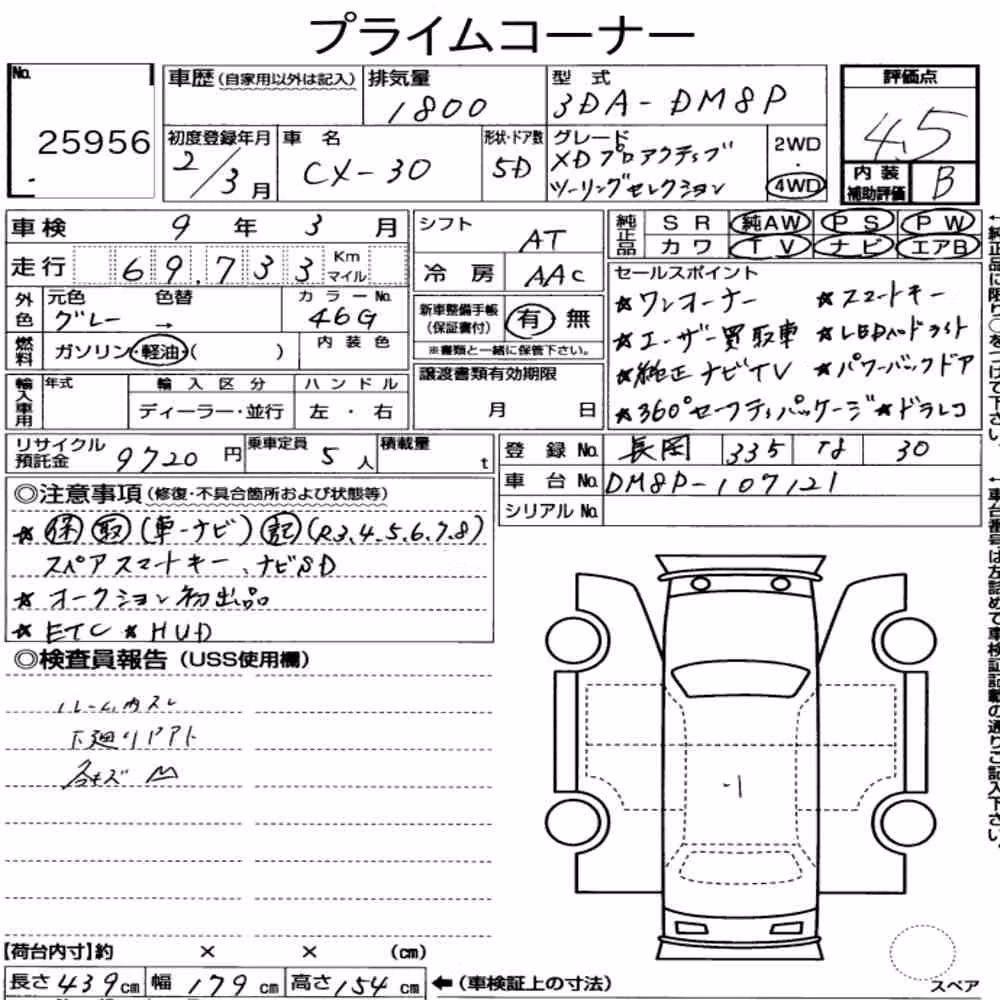 プライムコーナー
No. 25956
車歴 (自家用以外は記入)
排気量 1800
型式 3DA-DM8P
評価点 4.5
初度登録年月 2/3月
車名 CX-30
形状・ドア数 5D
グレード XDプロアクティブ
ツーリングセレクション
2WD ・ 4WD
内装補助評価 B
車検 9年 3月
走行 69,733 Km マイル
シフト AT
冷房 AAC
純正品 SR 純AW PS PW
カワ TV ナビ エアB
外色 元色 色替 カラーNo.
グレー → 46G
燃料 ガソリン・軽油・( ) 内装色
新車整備手帳(保証書付) 有 無
※書類と一緒に保管下さい。
輸入車用 年式 輸入区分 ハンドル
ディーラー・並行 左・右
譲渡書類有効期限
月 日
セールスポイント
★ワンオーナー ★スマートキー
★ユーザー買取車 ★LEDヘッドライト
★純正ナビTV ★パワーバックドア
★360°セーフティパッケージ★ドラレコ
リサイクル預託金 9720円
乗車定員 5人
積載量 t
登録No. 長岡 335 な 30
車台No. DM8P-107121
シリアルNo.
◎注意事項 (修復・不具合箇所および状態等)
★ 保 取 (車-ナビ) 記 (R3.4.5.6.7.8)
スペアスマートキー、ナビSD
★ オークション初出品
★ ETC ★ HUD
◎検査員報告 (USS使用欄)
ルーム内スレ
下廻りドアアト
各キズ
【荷台内寸】約 × × (cm)
長さ 439cm 幅 179cm 高さ 154cm
←(車検証上の寸法)
スペア
←純正品に限り○をつけて下さい。
←車台番号は左詰めで車検証記載の通りご記入下さい。